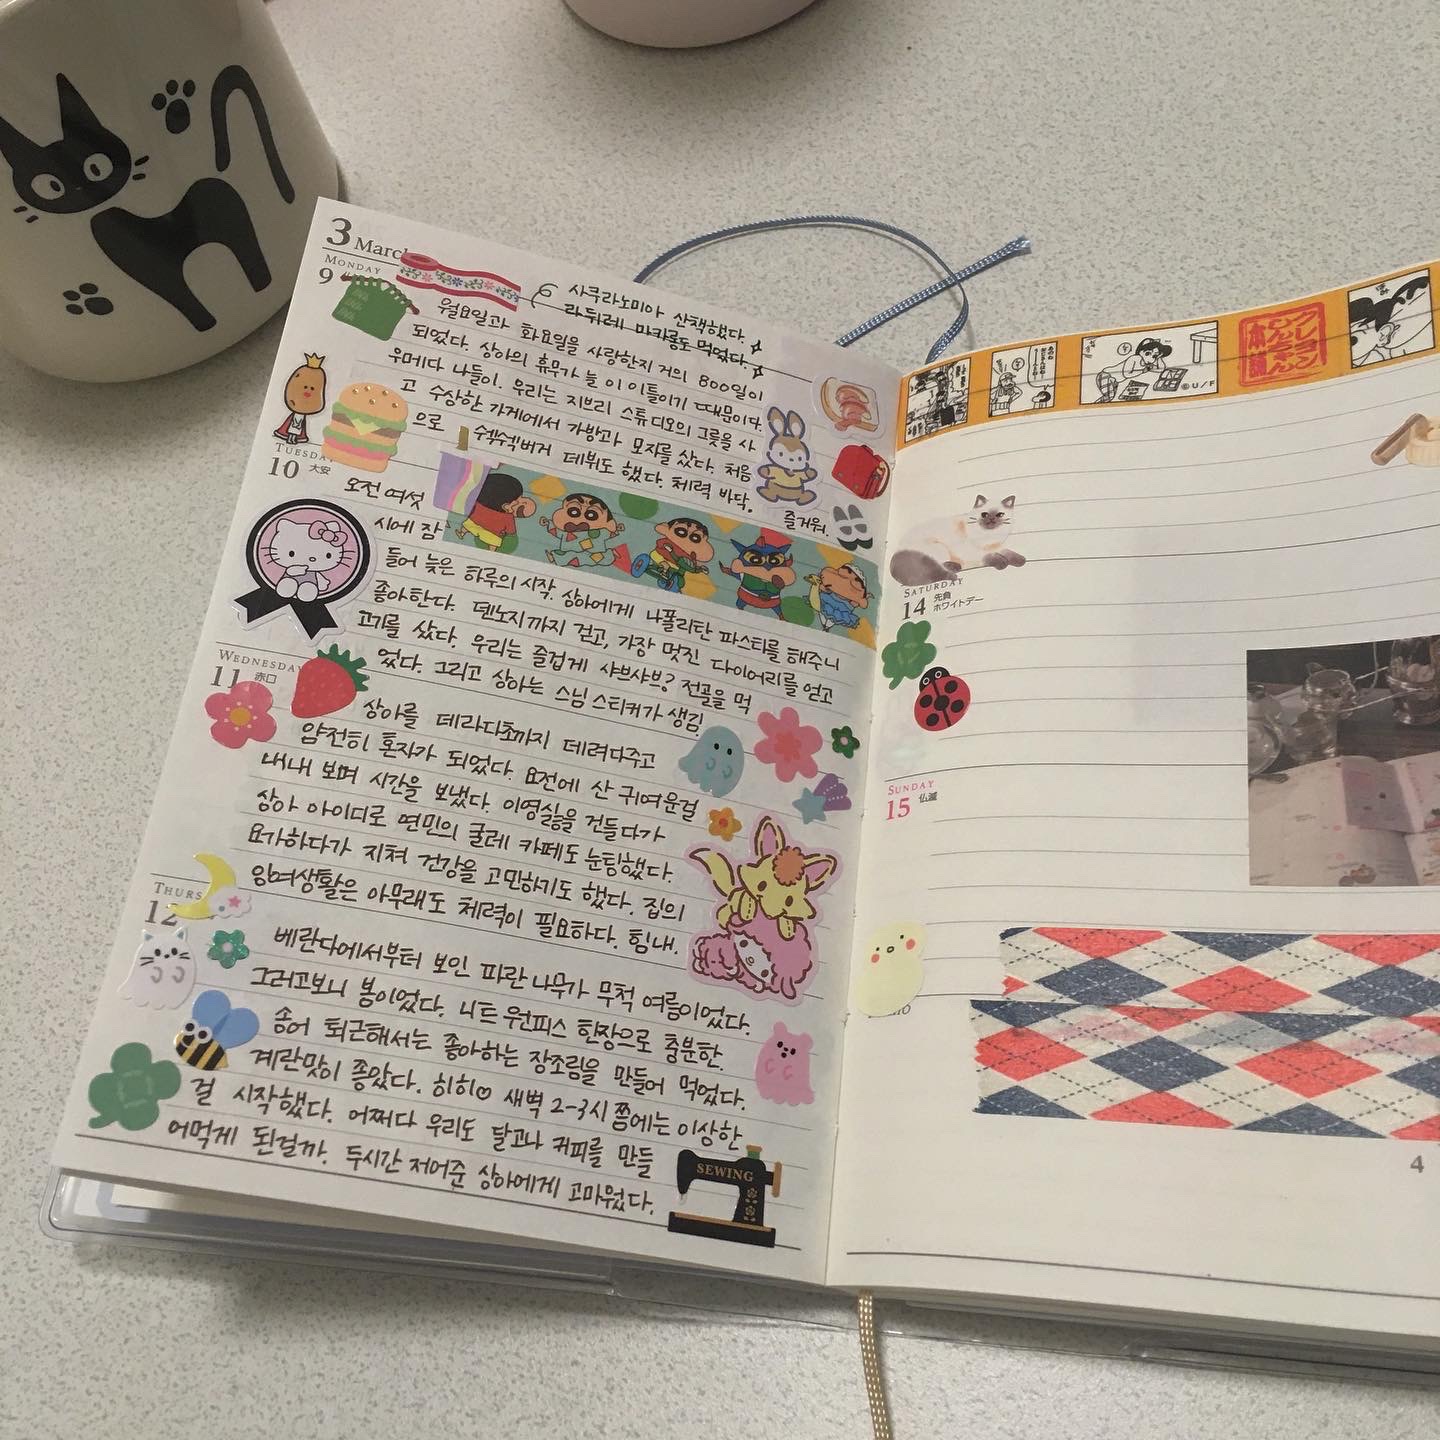 3 March
MONDAY
9
사쿠라노미야 산책했다.
라뒤레 마카롱도 먹었다.
월요일과 화요일을 사랑한지 거의 800일이
되었다. 상아의 휴무가 늘 이 이틀이기 때문이다.
우메다 나들이. 우리는 지브리 스튜디오의 그릇을 사
고 수상한 가게에서 가방과 모자를 샀다. 처음
으로 쉑쉑버거 데뷔도 했다. 체력 바닥.
즐거워.
TUESDAY
10 大安
오전 여섯
시에 잠
들어 늦은 하루의 시작. 상아에게 나폴리탄 파스타를 해주니
좋아한다. 덴노지까지 걷고, 가장 멋진 다이어리를 얻고
고기를 샀다. 우리는 즐겁게 샤브샤브? 전골을 먹
었다. 그리고 상아는 스님 스티커가 생김.
WEDNESDAY
11 赤口
상아를 데라다쵸까지 데려다주고
얌전히 혼자가 되었다. 요전에 산 귀여운걸
내내 보며 시간을 보냈다. 이영실을 건들다가
상아 아이디로 연민의 굴레 카페도 눈팅했다.
요가하다가 지쳐 건강을 고민하기도 했다. 집의
잉여생활은 아무래도 체력이 필요하다. 힘내.
THURS
12
베란다에서부터 보인 파란 나무가 무척 여름이었다.
그러고보니 봄이었다. 니트 원피스 한장으로 충분한.
숨어 퇴근해서는 좋아하는 장조림을 만들어 먹었다.
계란맛이 좋았다. 히히♡ 새벽 2-3시 쯤에는 이상한
걸 시작했다. 어쩌다 우리도 달고나 커피를 만들
어먹게 된걸까. 두시간 저어준 상아에게 고마웠다.
SEWING
クレヨン
しんちゃん
本舗
©U/F
SATURDAY
14 先負
ホワイトデー
SUNDAY
15 仏滅
4